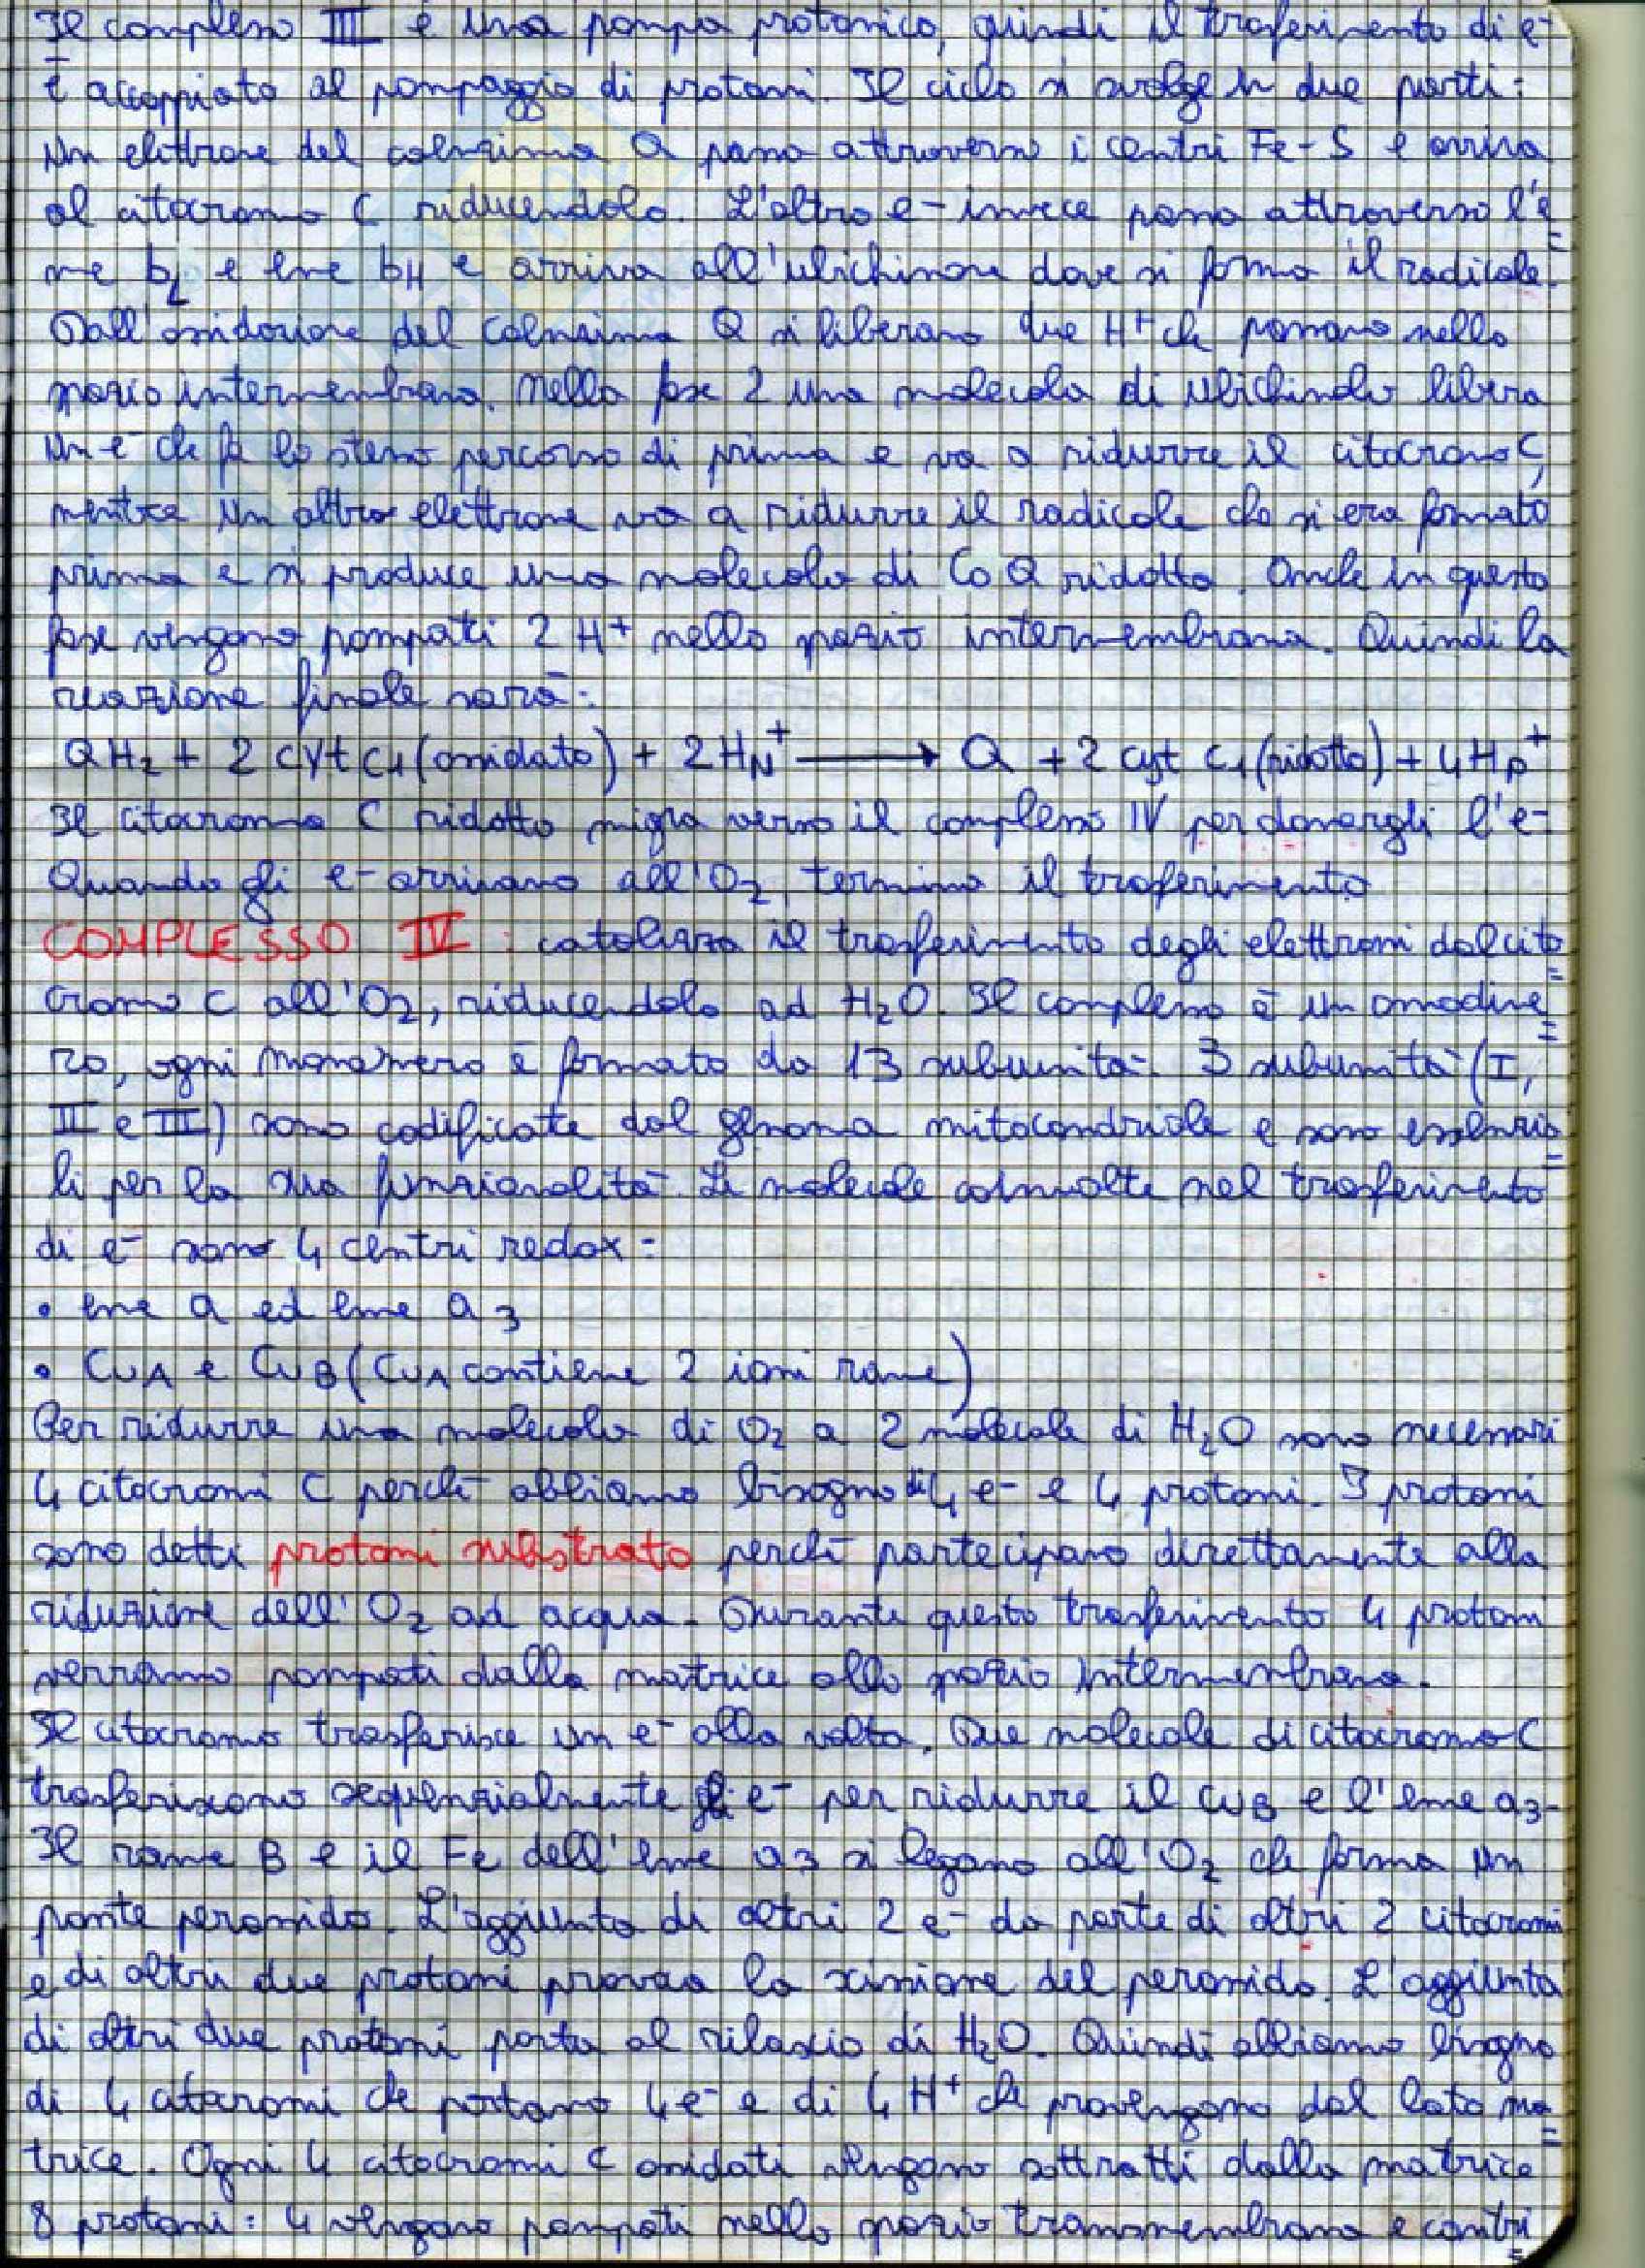 Il complesso III è una pompa protonica, quindi il trasferimento di e-
è accoppiato al pompaggio di protoni. Il ciclo si svolge in due parti:
Un elettrone del coenzima Q passa attraverso i centri Fe-S e arriva
al citocromo C riducendolo. L'altro e- invece passa attraverso l'e=
me bL e eme bH e arriva all'ubichinone dove si forma il radicale.
Dall'ossidazione del Coenzima Q si liberano due H+ che passano nello
spazio intermembrana. Nella fase 2 una molecola di ubichinolo libera
un e- che fa lo stesso percorso di prima e va a ridurre il citocromo C,
mentre un altro elettrone va a ridurre il radicale che si era formato
prima e si produce una molecola di CoQ ridotta. Anche in questa
fase vengono pompati 2 H+ nello spazio intermembrana. Quindi la
reazione finale sarà:
QH2 + 2 cyt c1 (ossidato) + 2HN+ → Q + 2 cyt c1 (ridotto) + 4Hp+
Il citocromo C ridotto migra verso il complesso IV per donargli l'e-
Quando gli e- arrivano all'O2 termina il trasferimento
COMPLESSO IV: catalizza il trasferimento degli elettroni dal cito=
cromo c all'O2, riducendolo ad H2O. Il complesso è un omodime=
ro, ogni monomero è formato da 13 subunità. 3 subunità (I,
II e III) sono codificate dal genoma mitocondriale e sono essenzia=
li per la sua funzionalità. Le molecole coinvolte nel trasferimento
di e- sono 4 centri redox:
• eme a ed eme a3
• CuA e CuB (CuA contiene 2 ioni rame)
Per ridurre una molecola di O2 a 2 molecole di H2O sono necessari
4 citocromi C perchè abbiamo bisogno di 4 e- e 4 protoni. I protoni
sono detti protoni substrato perchè partecipano direttamente alla
riduzione dell'O2 ad acqua. Durante questo trasferimento 4 protoni
verranno pompati dalla matrice allo spazio intermembrana.
Il citocromo trasferisce un e- alla volta. Due molecole di citocromo C
trasferiscono sequenzialmente gli e- per ridurre il CuB e l'eme a3.
Il rame B e il Fe dell'eme a3 si legano all'O2 che forma un
ponte perossido. L'aggiunta di altri 2 e- da parte di altri 2 citocromi
e di altri due protoni provoca la scissione del perossido. L'aggiunta
di altri due protoni porta al rilascio di H2O. Quindi abbiamo bisogno
di 4 citocromi che portano 4e- e di 4 H+ che provengono dal lato ma=
trice. Ogni 4 citocromi C ossidati vengono sottratti dalla matrice
8 protoni: 4 vengono pompati nello spazio transmembrana e contri=